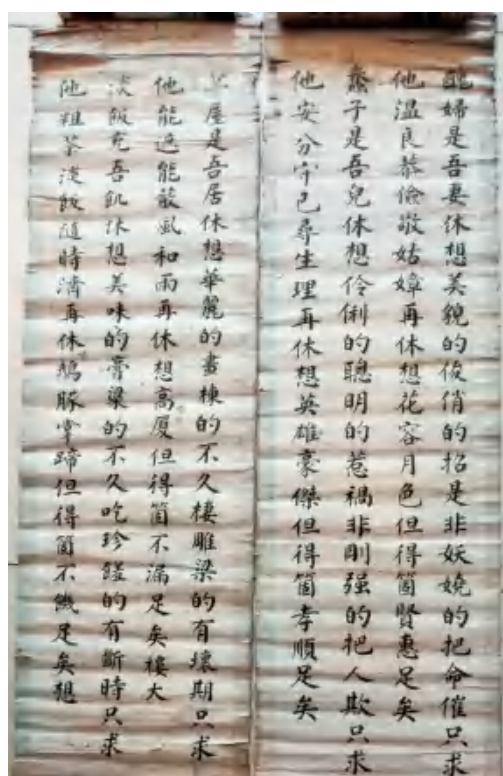 醜婦是吾妻休想美貌的俊俏的招是非妖嬈的把命催只求
他温良恭儉敬姑嫜再休想花容月色但得箇賢惠足矣
蠢子是吾兒休想伶俐的聰明的惹禍非剛强的把人欺只求
他安分守己尋生理再休想英雄豪傑但得箇孝順足矣
屋是吾居休想華麗的畫棟的不久棲雕梁的有壞期只求
他能遮能蔽風和雨再休想高厦但得箇不漏足矣樓大
淡飯充吾飢休想美味的膏粱的不久吃珍饈的有斷時只求
他粗茶淡飯隨時濟再休鵝豚掌蹄但得箇不饑足矣想